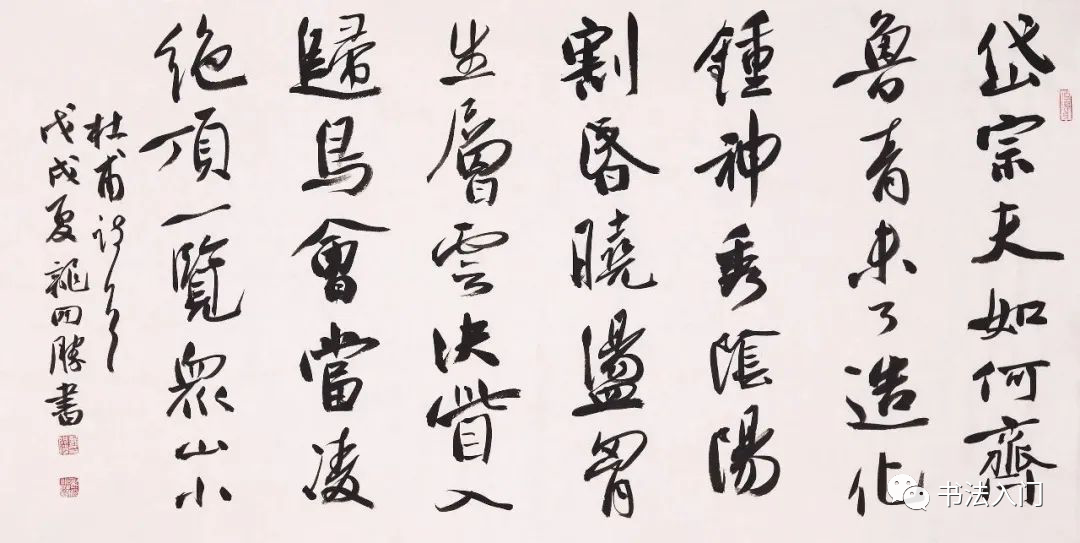 岱宗夫如何齊
魯青未了造化
鍾神秀陰陽
割昏曉盪胷
生層雲決眥入
歸鳥會當凌
絶頂一覽眾山小
杜甫詩一首
戊戌夏龍開勝書
书法入门